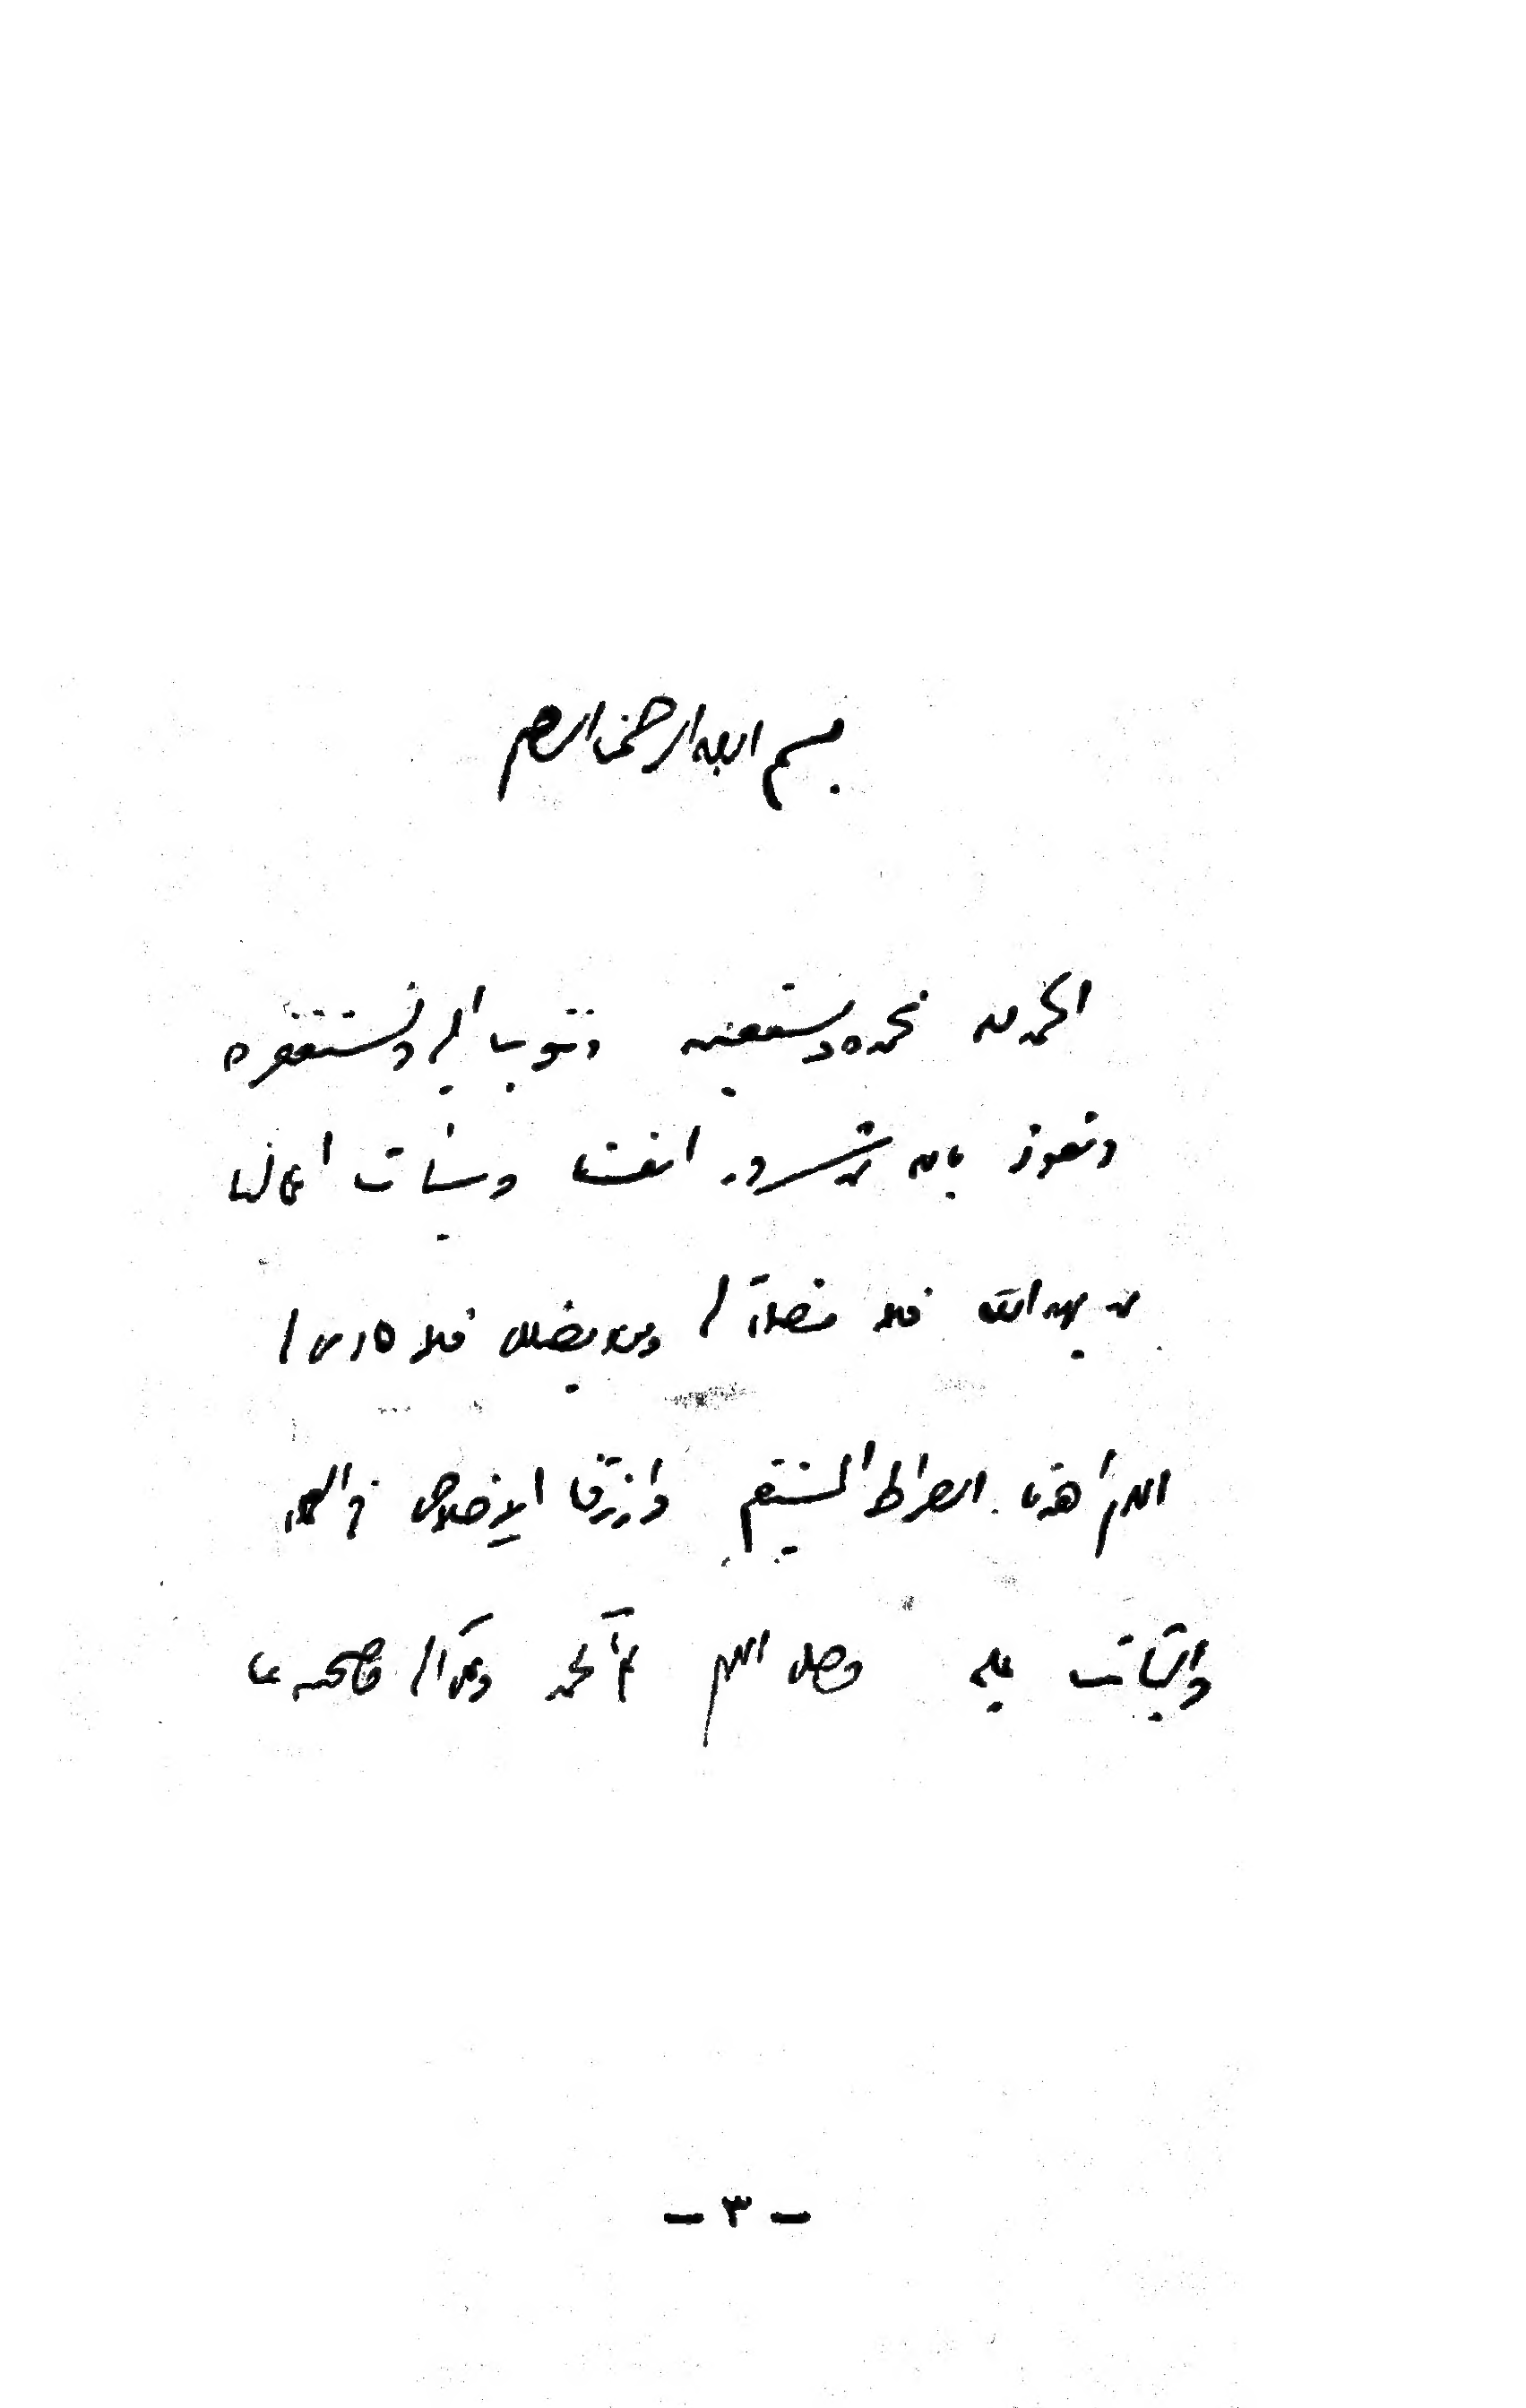 بسم الله الرحمن الرحيم
الحمد لله نحمده ونستعينه ونتوب إليه ونستغفره
ونعوذ بالله من شرور أنفسنا وسيئات أعمالنا
من يهد الله فلا مضل له ومن يضلل فلا هادي له
اللهم اهدنا الصراط المستقيم وارزقنا الإخلاص في العمل
والثبات عليه وصل اللهم على محمد وعلى آله وصحبه
- ٣ -